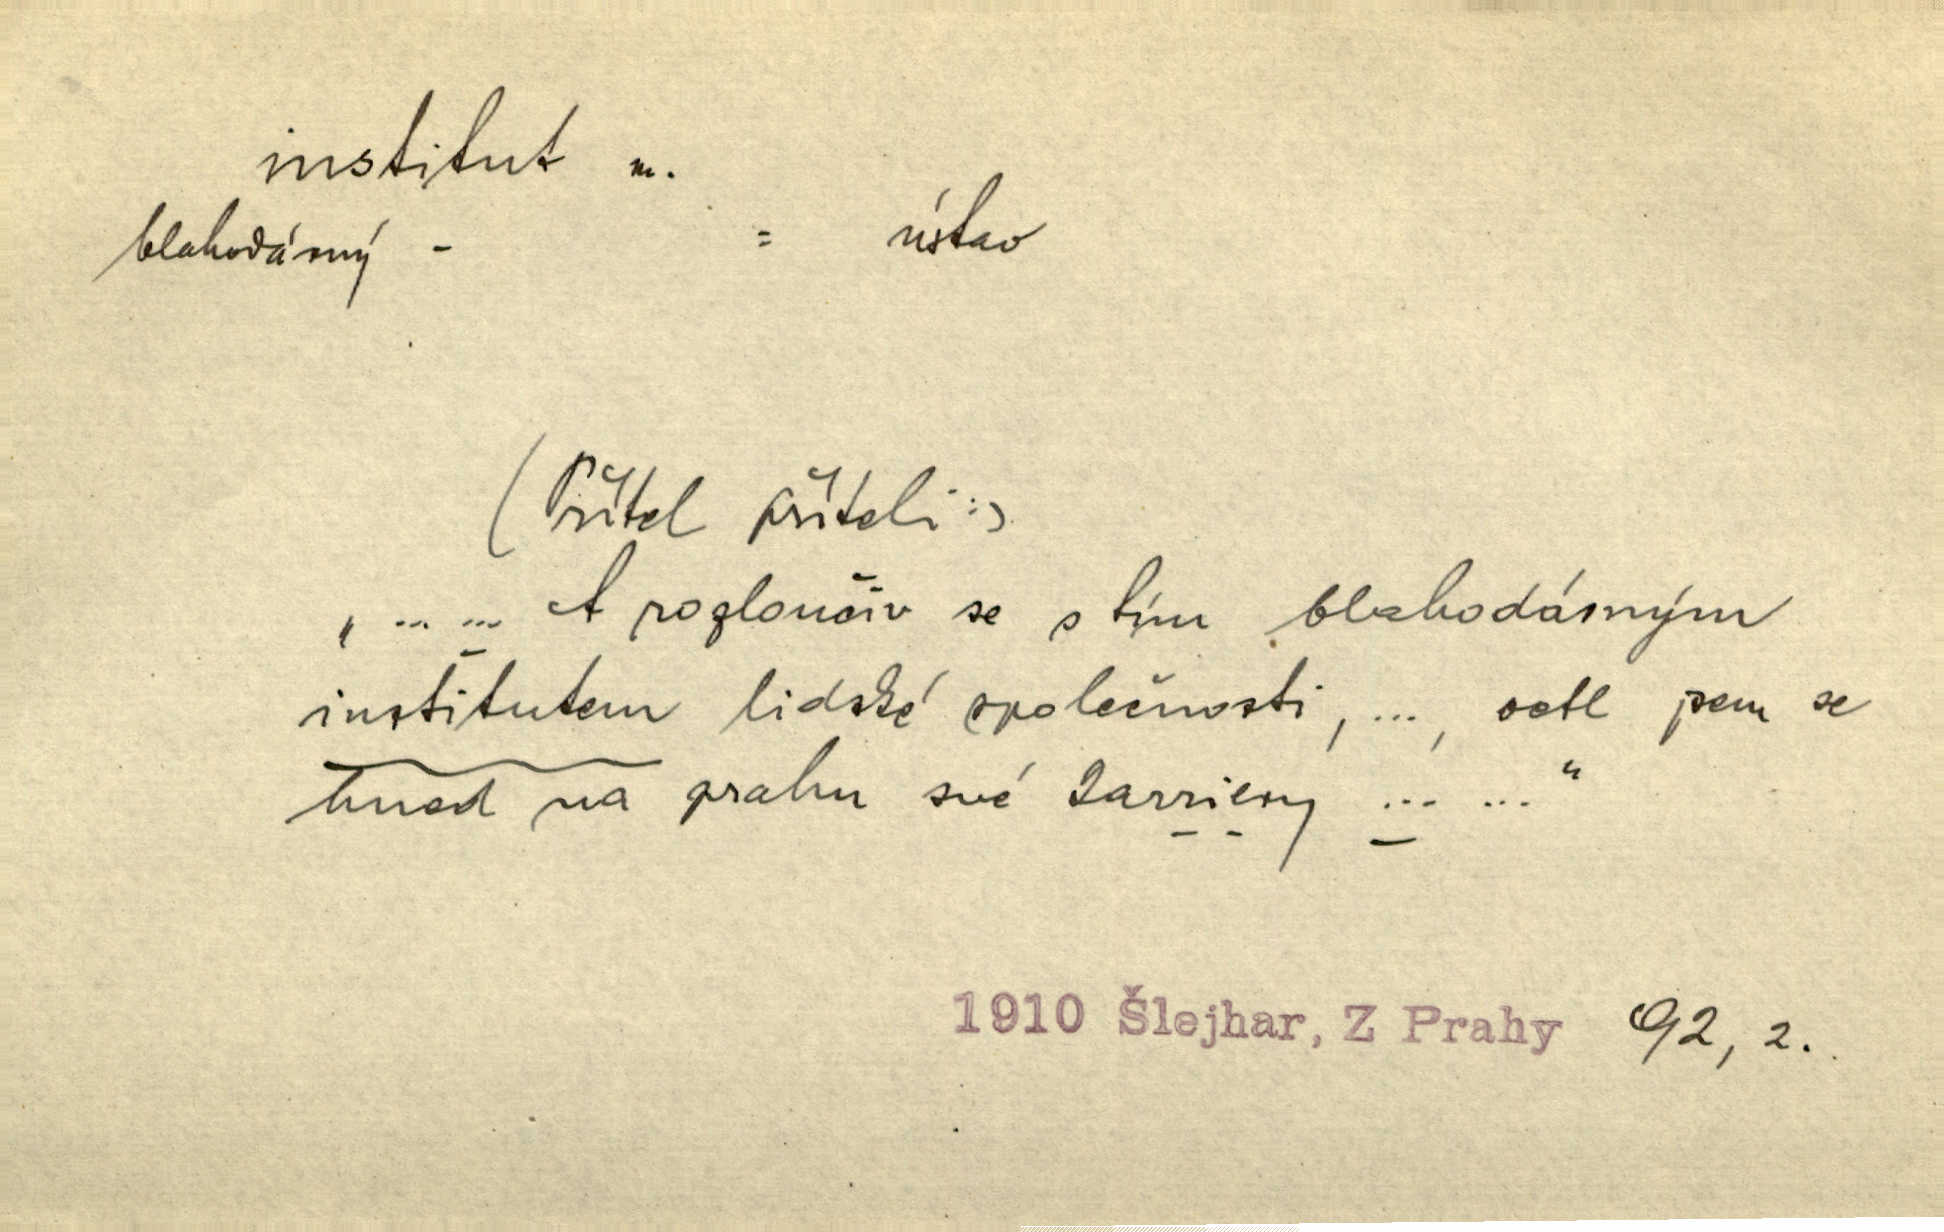 institut m.
blahodárný - = ústav
(Přítel příteli:)
„ ... ... A rozloučiv se s tím blahodárným
institutem lidské společnosti, ..., octl jsem se
hned na prahu své karriery ... ..."
1910 Šlejhar, Z Prahy 92, 2.